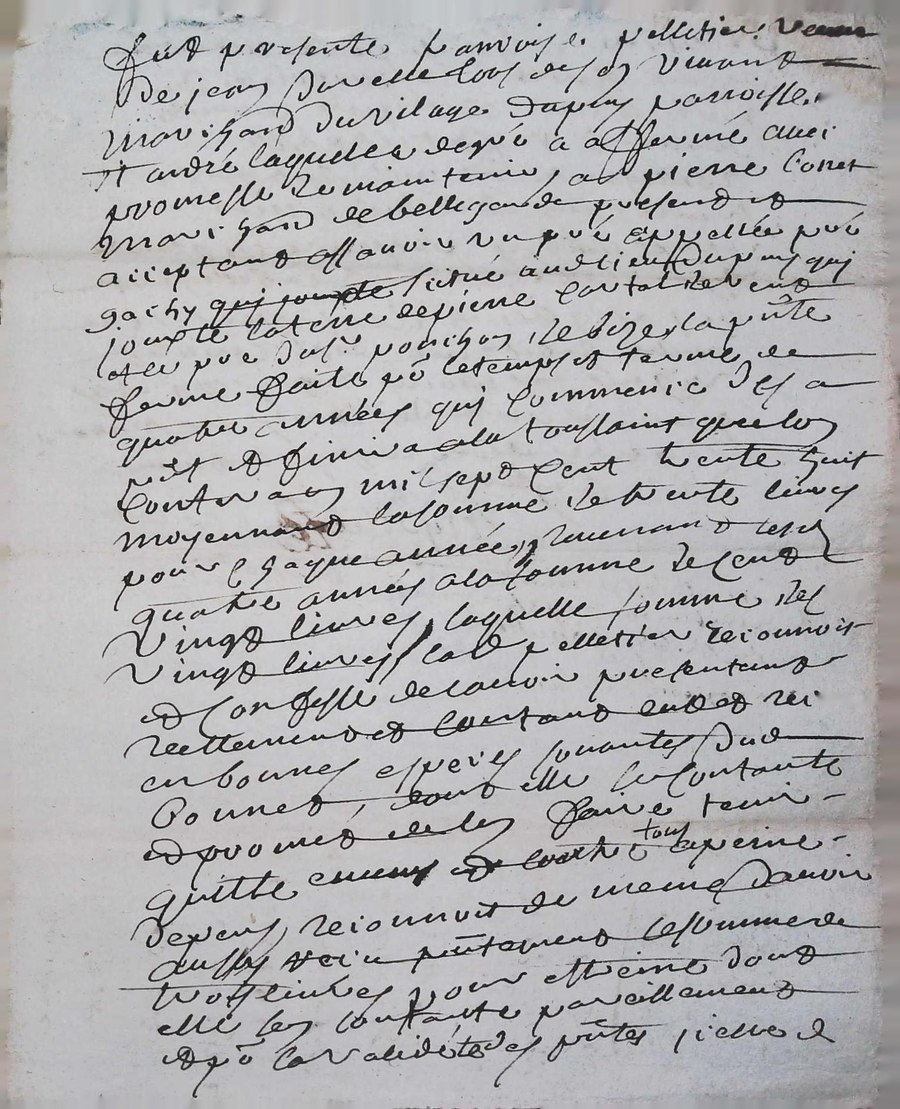 fut presente francoise pelletier veuve
de jean
marchand du vilage Dupuy parroisse
st andré laquelle de gré a affermé avec
promesse de maintenir, a pierre
marchand de bellegarde present et
acceptant assavoir un pré appellée pré
gachy qui jouxte situé audit lieu Dupuy qui
jouxte la terre de pierre de vent
et le pré du sr ponchon de bize, la pnte
ferme faite po le temps et terme de
quatre années qui commence des a
pnt et finira a la toussaint que lon
contera mil sept cent trente huit
moyennant la somme de trente livres
pour chaque année, revenant lesd
quatre années a la somme de cent
vingt livres, laquelle somme des
vingt livres lad pelletier reconnoit
et confesse de lavoir presentement
reellement et contant eue et
en bonnes especes sonantes
dont elle se contante
et promet de len faire tenir
quitte envers et tous a peine
depens, reconnoit de meme davoir
aussy recu pntement la somme de
trois livres pour etreine dont
elle se contante pareillement
et po la validité des pntes